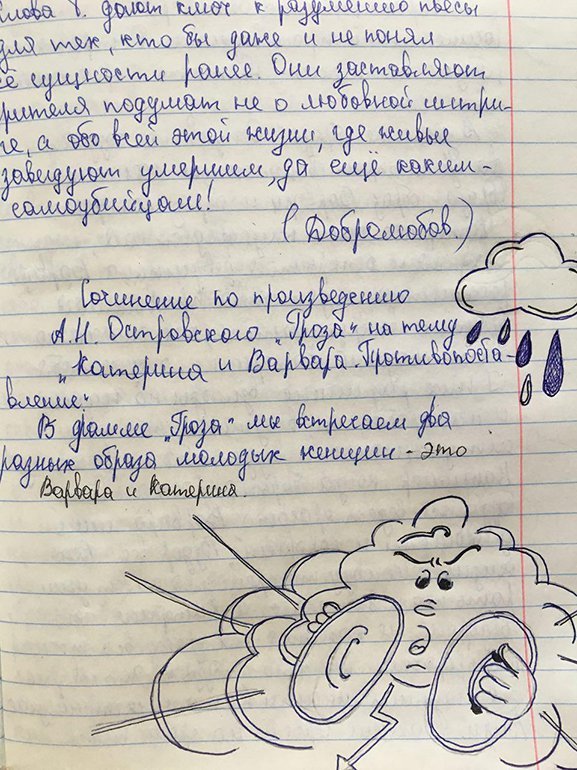 слова Т. делают ключ к разумению пьесы
для тех, кто бы даже и не понял
её сущности ранее. Они заставляют
зрителя подумат не о любовной интри-
ге, а обо всей этой жизни, где живые
завидуют умершим, да ещё каким -
самоубийцам!
(Добролюбов.)
Сочинение по произведению
А.Н. Островского „Гроза“ на тему
„Катерина и Варвара. Противопоста-
вление“.
В драмме „Гроза“ мы встречаем два
разных образа молодых женщин - это
Варвара и Катерина.